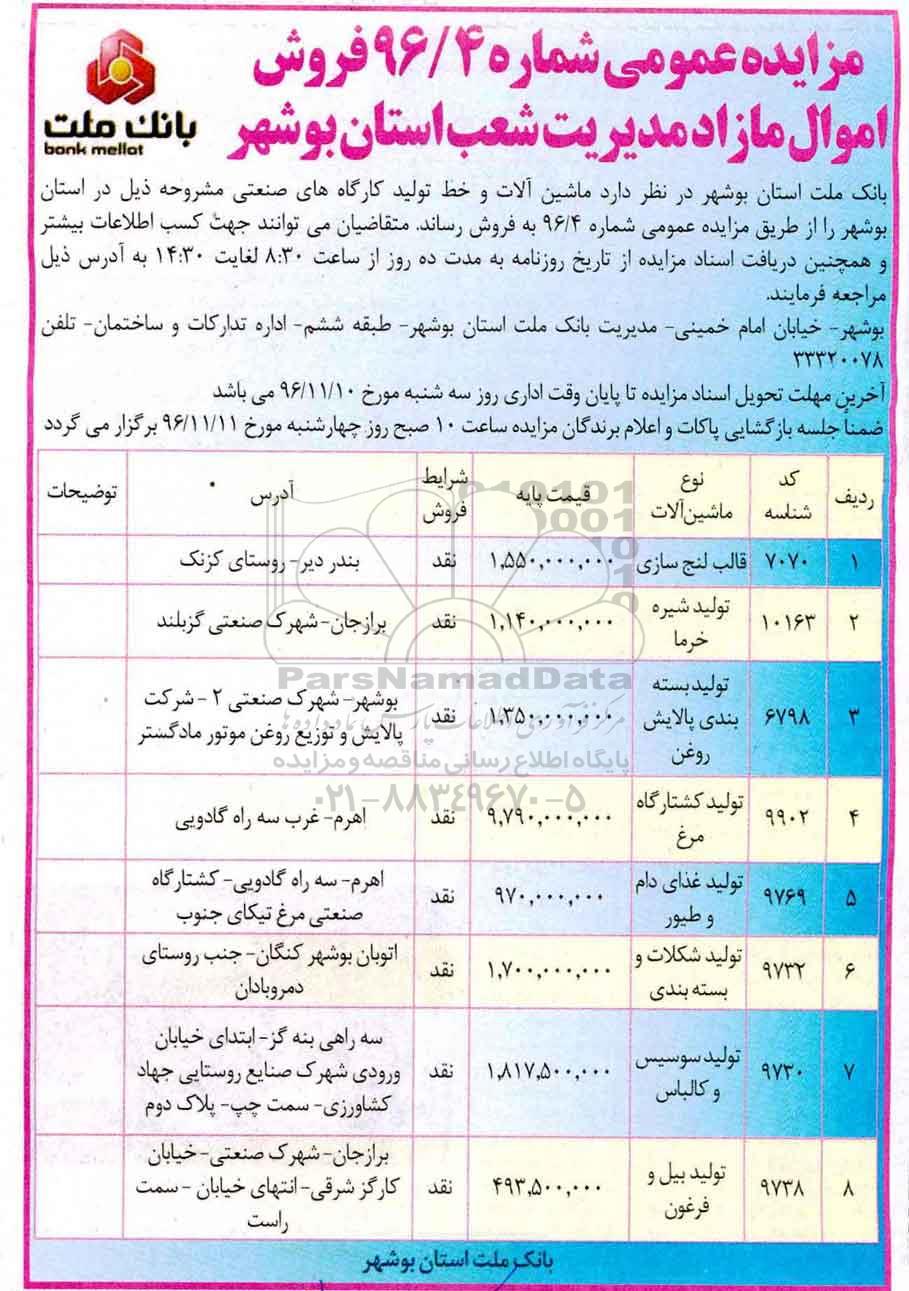 مزایده عمومی شماره ۹۶/۴ فروش
اموال مازاد مدیریت شعب استان بوشهر
بانک ملت
bank mellat
بانک ملت استان بوشهر در نظر دارد ماشین آلات و خط تولید کارگاه های صنعتی مشروحه ذیل در استان
بوشهر را از طریق مزایده عمومی شماره ۹۶/۴ به فروش رساند. متقاضیان می توانند جهت کسب اطلاعات بیشتر
و همچنین دریافت اسناد مزایده از تاریخ روزنامه به مدت ده روز از ساعت ۸:۳۰ لغایت ۱۴:۳۰ به آدرس ذیل
مراجعه فرمایند.
بوشهر- خیابان امام خمینی- مدیریت بانک ملت استان بوشهر- طبقه ششم- اداره تدارکات و ساختمان- تلفن
۳۳۳۲۰۰۷۸
آخرین مهلت تحویل اسناد مزایده تا پایان وقت اداری روز سه شنبه مورخ ۹۶/۱۱/۱۰ می باشد
ضمناً جلسه بازگشایی پاکات و اعلام برندگان مزایده ساعت ۱۰ صبح روز چهارشنبه مورخ ۹۶/۱۱/۱۱ برگزار می گردد
ردیف کد شناسه نوع ماشین‌آلات قیمت پایه شرایط فروش آدرس توضیحات
۱ ۷۰۷۰ قالب لنج سازی ۱,۵۵۰,۰۰۰,۰۰۰ نقد بندر دیر- روستای کزنک
۲ ۱۰۱۶۳ تولید شیره خرما ۱,۱۴۰,۰۰۰,۰۰۰ نقد برازجان-شهرک صنعتی گزبلند
۳ ۶۷۹۸ تولید بسته بندی پالایش روغن ۱,۳۵۰,۰۰۰,۰۰۰ نقد بوشهر- شهرک صنعتی ۲ - شرکت پالایش و توزیع روغن موتور مادگستر
۴ ۹۹۰۲ تولید کشتارگاه مرغ ۹,۷۹۰,۰۰۰,۰۰۰ نقد اهرم- غرب سه راه گادویی
۵ ۹۷۶۹ تولید غذای دام و طیور ۹۷۰,۰۰۰,۰۰۰ نقد اهرم- سه راه گادویی- کشتارگاه صنعتی مرغ تیکای جنوب
۶ ۹۷۳۲ تولید شکلات و بسته بندی ۱,۷۰۰,۰۰۰,۰۰۰ نقد اتوبان بوشهر کنگان- جنب روستای دمروبادان
۷ ۹۷۳۰ تولید سوسیس و کالباس ۱,۸۱۷,۵۰۰,۰۰۰ نقد سه راهی بنه گز- ابتدای خیابان ورودی شهرک صنایع روستایی جهاد کشاورزی- سمت چپ- پلاک دوم
۸ ۹۷۳۸ تولید بیل و فرغون ۴۹۳,۵۰۰,۰۰۰ نقد برازجان- شهرک صنعتی- خیابان کارگز شرقی- انتهای خیابان - سمت راست
بانک ملت استان بوشهر
ParsNamadData
پایگاه اطلاع رسانی مناقصه و مزایده
۰۲۱-۸۸۳۴۹۶۷۰-۵